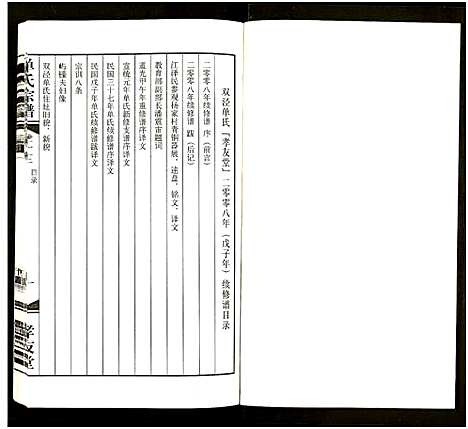 双泾单氏『孝友堂』二零零八年（戊子年）续修谱目录
二零零八年续修谱 序（前言）
二零零八年续修谱 跋（后记）
江泽民参观杨家村青铜器展、逨盘、铭文、译文
教育部副部长潘震宙题词
道光甲午年重修谱序译文
宣统元年单氏新修支谱序译文
民国三十七年单氏续修谱序译文
民国戊子年单氏续修谱跋译文
宗训八条
屿嵝夫妇像
双泾单氏住址旧貌、新貌
单氏宗谱
目录
一
孝友堂